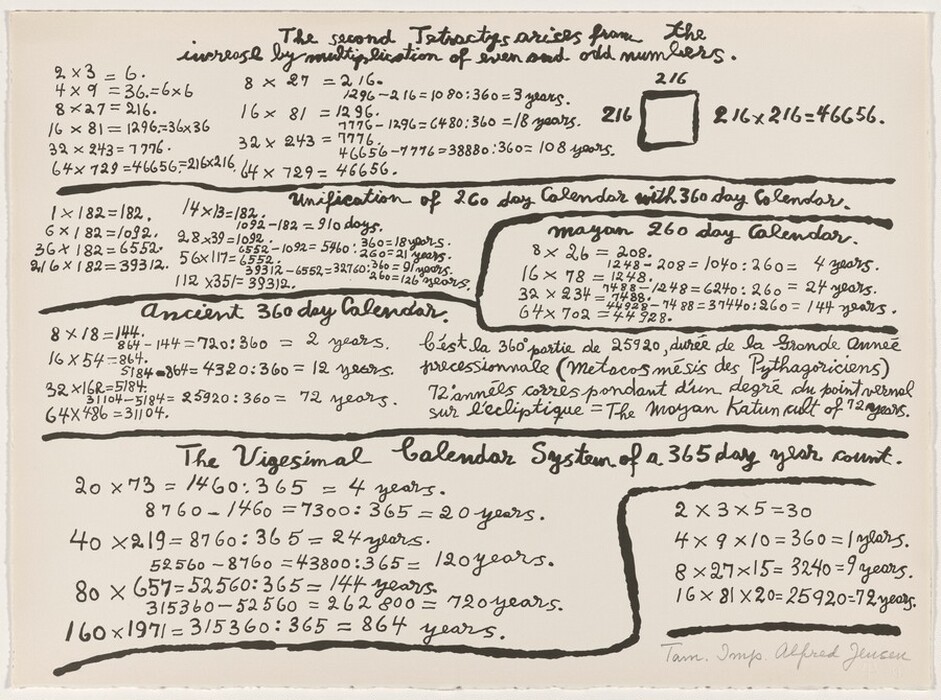 The second Tetractys arises from the
increase by multiplication of even and odd numbers.
2 × 3 = 6.
4 × 9 = 36.=6×6
8×27=216.
16 × 81 = 1296.=36×36
32 × 243= 7776.
64×729=46656.=216×216
8 × 27 = 216.
1296-216=1080:360=3 years.
16 × 81 = 1296.
7776-1296=6480:360=18 years.
32 × 243 = 7776.
46656-7776=38880:360= 108 years.
64 × 729 = 46656.
216
216
216×216=46656.
Unification of 260 day Calendar with 360 day Calendar.
1×182=182.
6×182=1092.
36×182=6552.
216×182=39312.
14×13=182.
1092-182=910 days.
28×39=1092.
6552-1092=5460:360=18 years.
260=21 years.
56×117=6552.
39312-6552=32760:360=91 years.
260=126 years.
112×351=39312.
Mayan 260 day Calendar.
8 × 26 = 208.
1248-208=1040:260= 4 years.
16 × 78 = 1248.
7488-1248=6240:260= 24 years.
32 × 234=7488.
44928-7488=37440:260= 144 years.
64×702=44928.
Ancient 360 day Calendar.
8×18=144.
864-144=720:360 = 2 years.
16×54=864.
5184-864=4320:360= 12 years.
32×162=5184.
31104-5184= 25920:360= 72 years.
64×486=31104.
C'est la 360e partie de 25920, durée de la Grande Année
precessionnale (Metacosmésis des Pythagoriciens)
72 années correspondant d'un degré du point vernal
sur l'ecliptique = The Mayan Katun cult of 72 years.
The Vigesimal Calendar System of a 365 day year count.
20 × 73 = 1460:365 = 4 years.
8760-1460=7300:365=20 years.
40 ×219=8760:365=24 years.
52560-8760=43800:365= 120 years.
80 × 657=52560:365=144 years.
315360-52560=262800=720 years.
160×1971=315360:365=864 years.
2×3×5=30
4×9×10=360=1 years.
8×27×15=3240=9 years.
16×81×20=25920=72 years.
Tam. Imp. Alfred Jensen